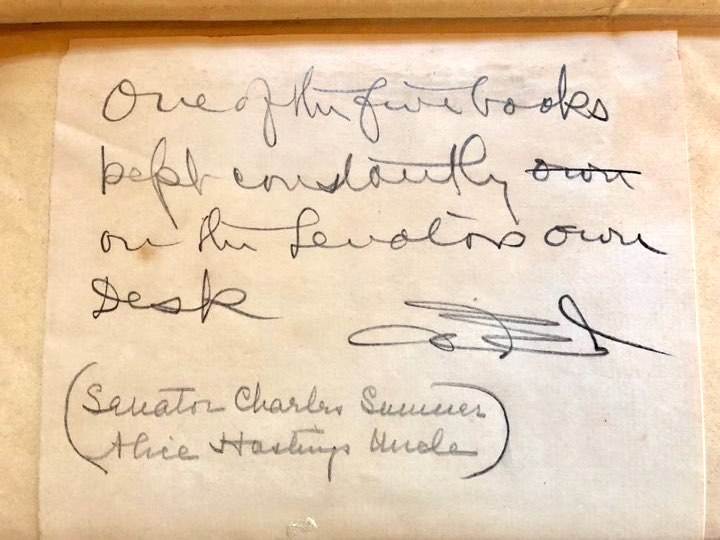 One of the five books
kept constantly ~~own~~
on the Senators own
Desk
(Senator Charles Sumner
Alice Hastings Uncle)